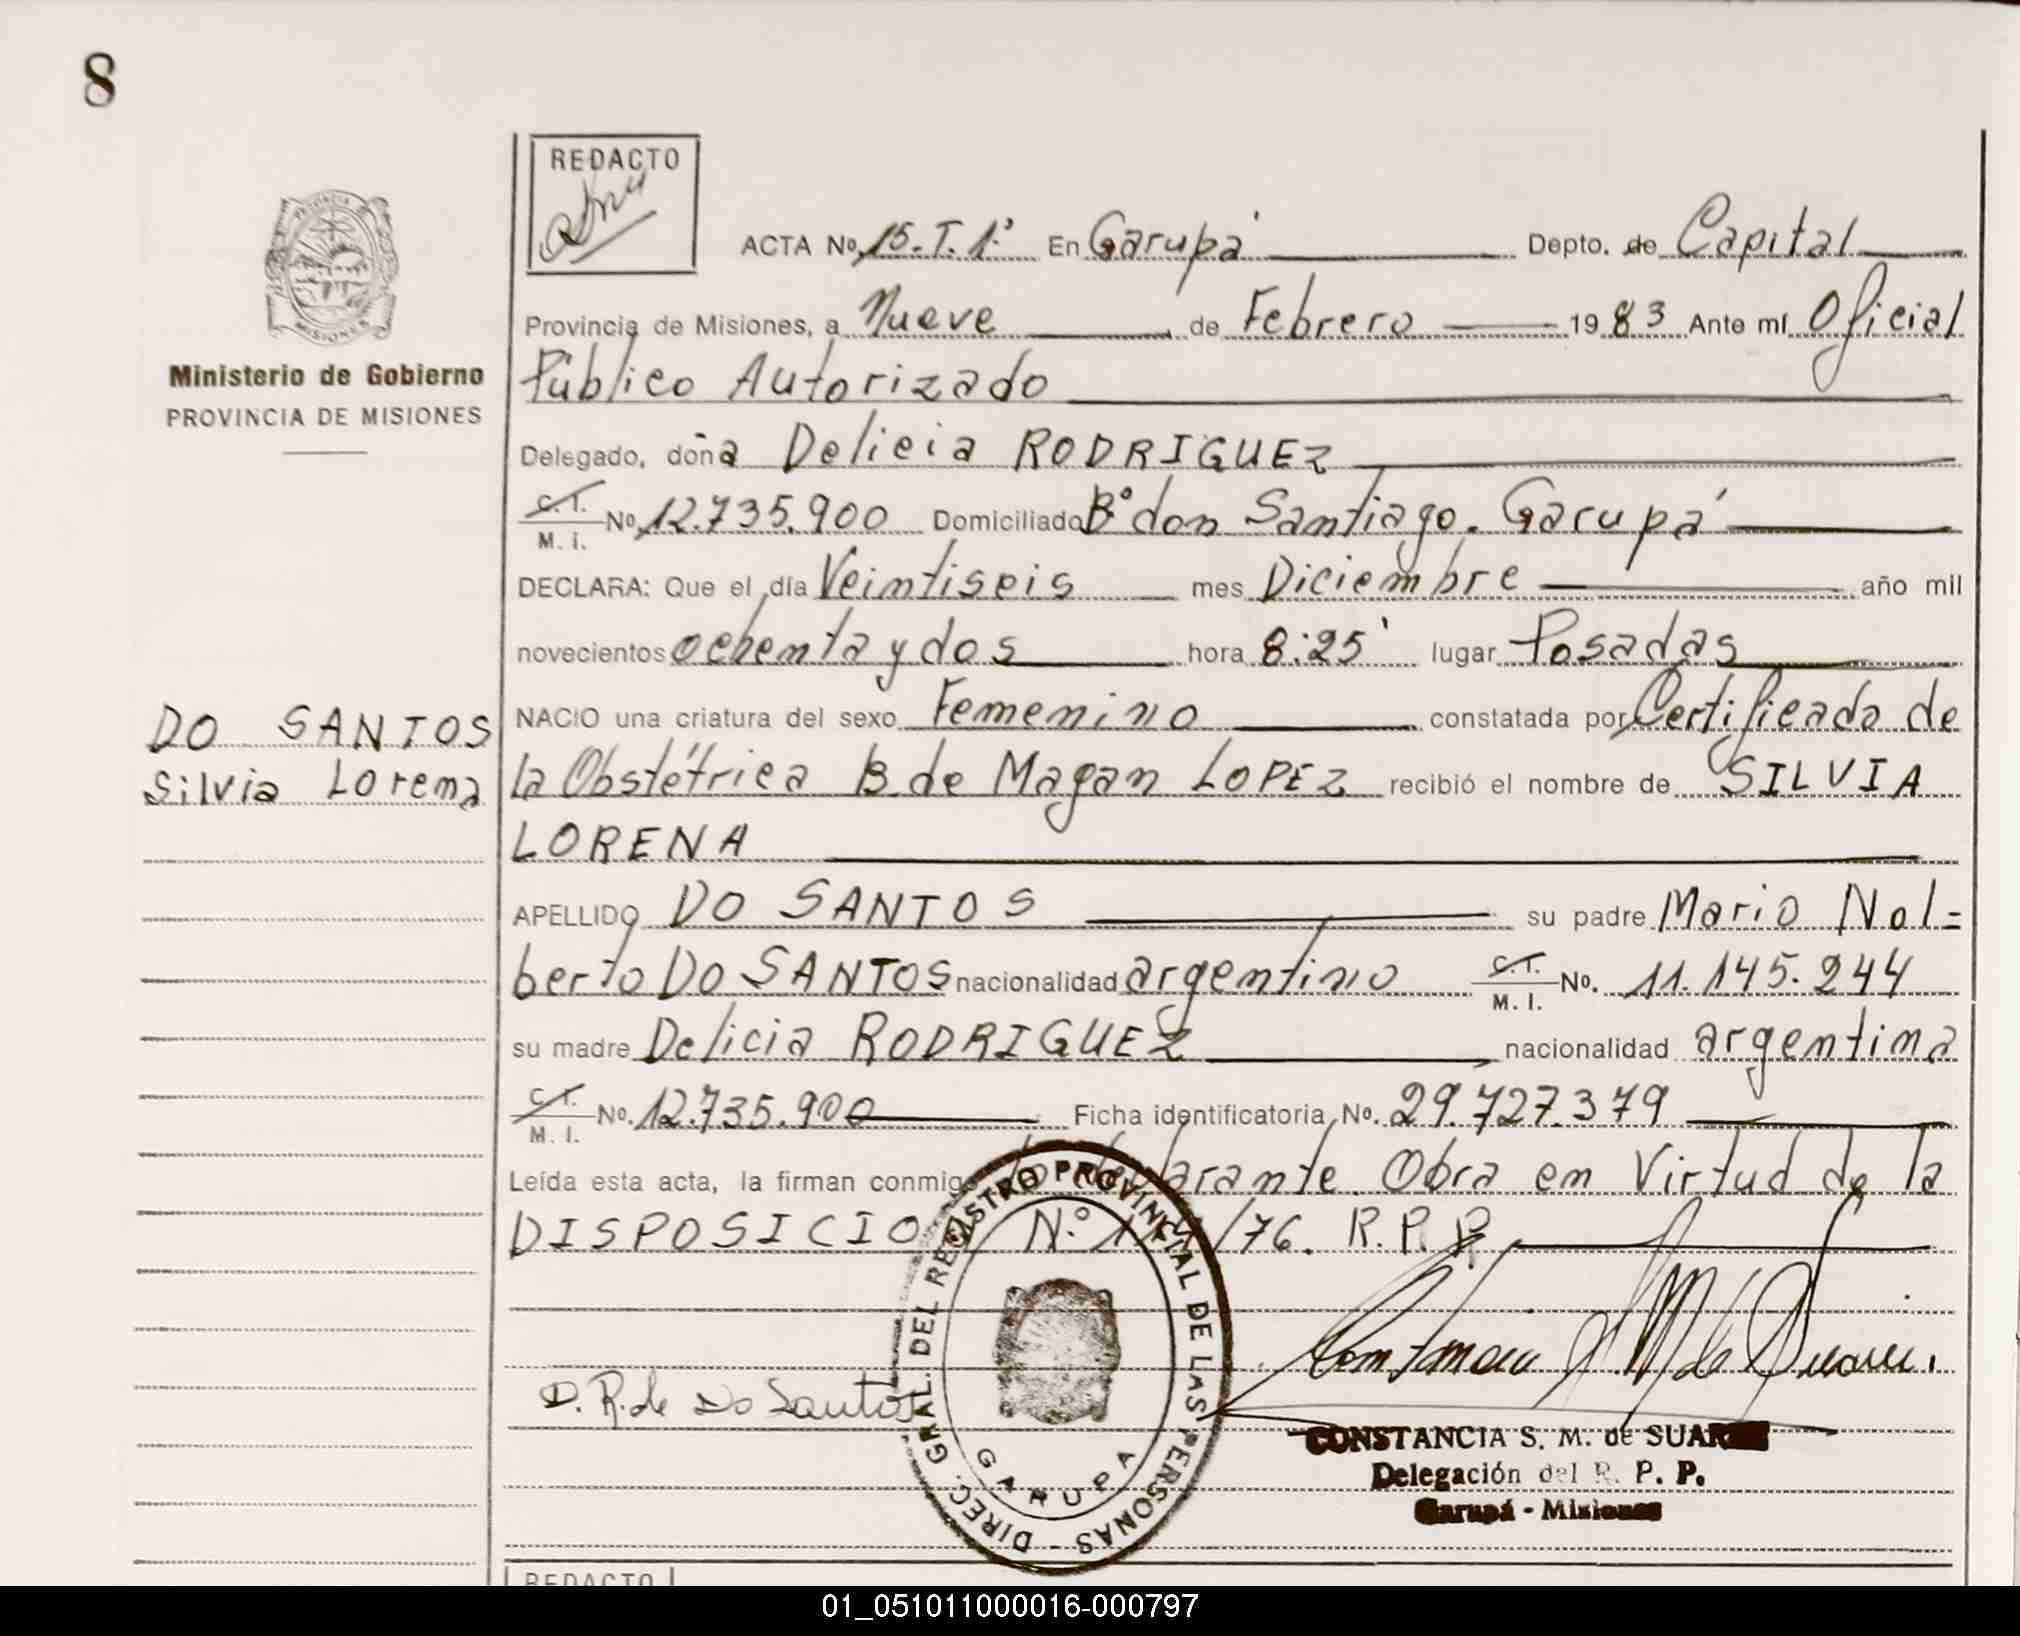 8
REDACTO
ACTA No. 15.T.1º En Garupá Depto. de Capital
Provincia de Misiones, a Nueve de Febrero 1983 Ante mí Oficial
Ministerio de Gobierno
PROVINCIA DE MISIONES
Público Autorizado
Delegado, doña Delicia RODRIGUEZ
C.I.
M. I. No. 12.735.900 Domiciliado Bº don Santiago. Garupá
DECLARA: Que el día Veintiseis mes Diciembre año mil
novecientos ochenta y dos hora 8:25' lugar Posadas
DO SANTOS
Silvia Lorena
NACIO una criatura del sexo Femenino constatada por Certificado de
la Obstétrica B. de Magan LOPEZ recibió el nombre de SILVIA
LORENA
APELLIDO DO SANTOS su padre Mario Nol=
berto DO SANTOS nacionalidad argentino C.I.
M. I. No. 11.145.244
su madre Delicia RODRIGUEZ nacionalidad argentina
C.I.
M. I. No. 12.735.900 Ficha identificatoria No. 29.727.379
Leída esta acta, la firman conmigo declarante. Obra en Virtud de la
DISPOSICIO N.º /76. R.P.P.
DIREC. GRAL. DEL REGISTRO PROVINCIAL DE LAS PERSONAS -
GARUPA
D. R. de Do Santos
CONSTANCIA S. M. de SUAREZ
Delegación del R. P. P.
Garupá - Misiones
REDACTO
01_051011000016-000797